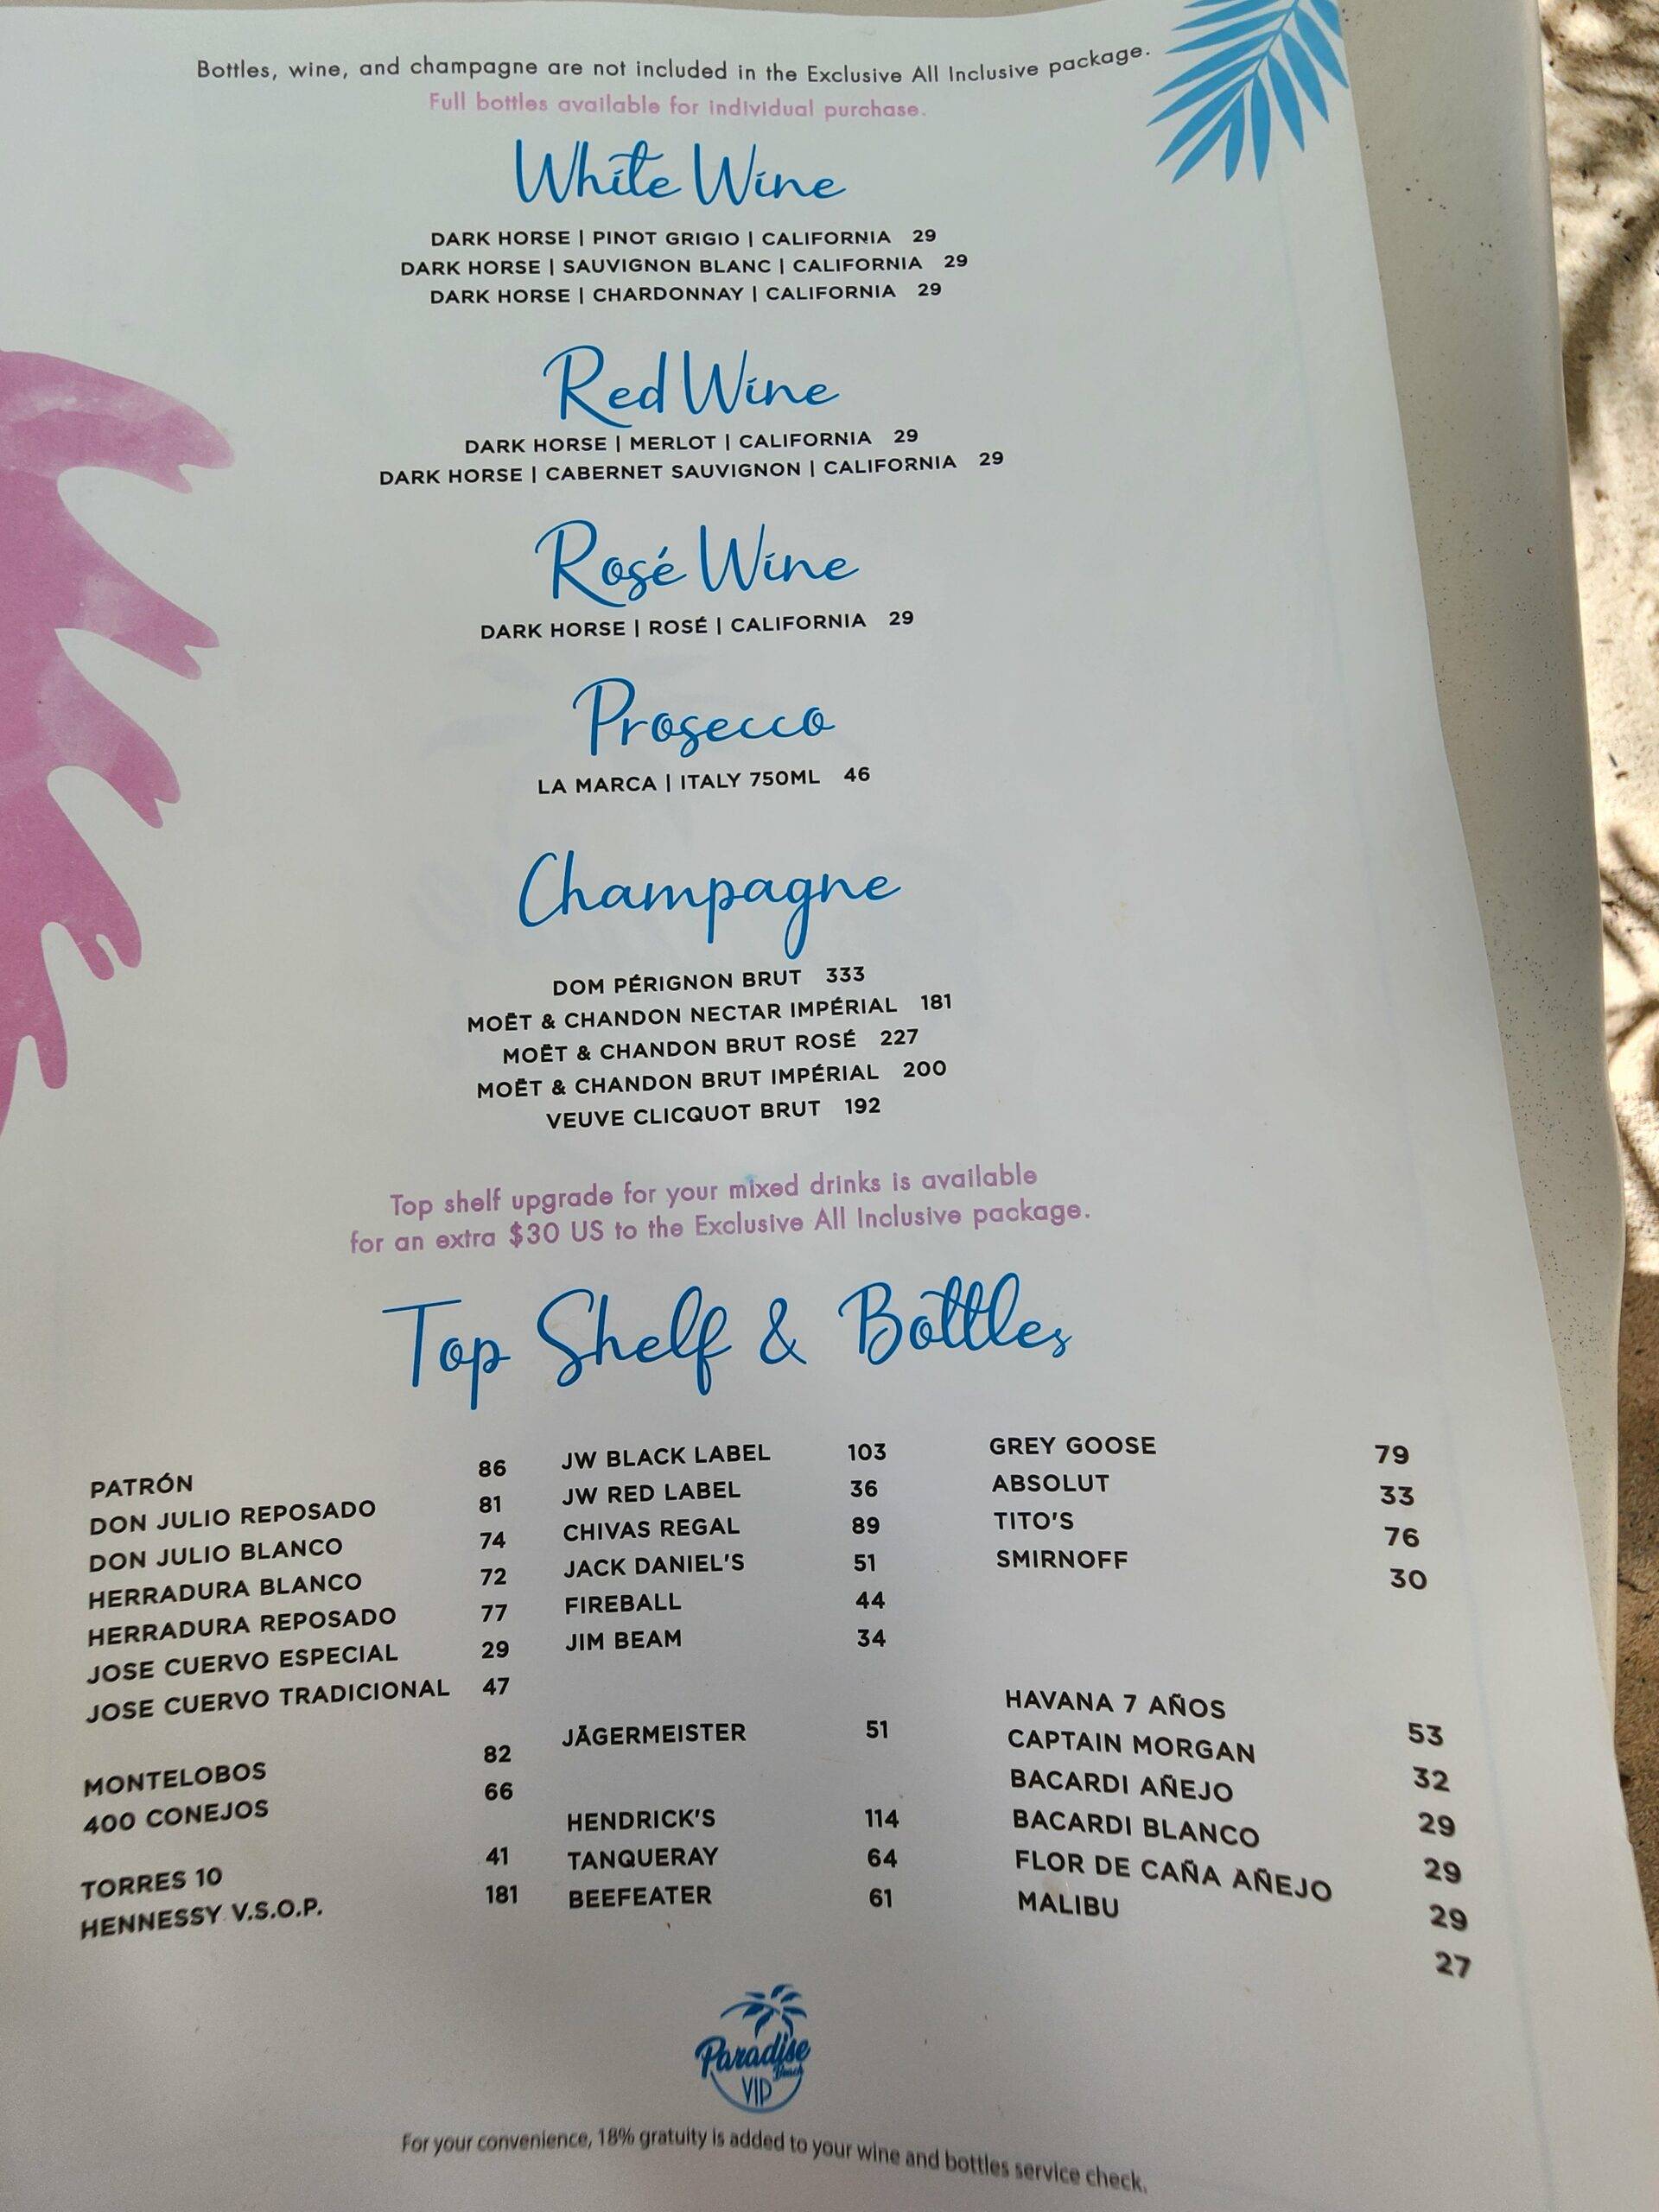 Bottles, wine, and champagne are not included in the Exclusive All Inclusive package.
Full bottles available for individual purchase.
White Wine
DARK HORSE | PINOT GRIGIO | CALIFORNIA 29
DARK HORSE | SAUVIGNON BLANC | CALIFORNIA 29
DARK HORSE | CHARDONNAY | CALIFORNIA 29
Red Wine
DARK HORSE | MERLOT | CALIFORNIA 29
DARK HORSE | CABERNET SAUVIGNON | CALIFORNIA 29
Rosé Wine
DARK HORSE | ROSÉ | CALIFORNIA 29
Prosecco
LA MARCA | ITALY 750ML 46
Champagne
DOM PÉRIGNON BRUT 333
MOËT & CHANDON NECTAR IMPÉRIAL 181
MOËT & CHANDON BRUT ROSÉ 227
MOËT & CHANDON BRUT IMPÉRIAL 200
VEUVE CLICQUOT BRUT 192
Top shelf upgrade for your mixed drinks is available
for an extra $30 US to the Exclusive All Inclusive package.
Top Shelf & Bottles
PATRÓN 86
DON JULIO REPOSADO 81
DON JULIO BLANCO 74
HERRADURA BLANCO 72
HERRADURA REPOSADO 77
JOSE CUERVO ESPECIAL 29
JOSE CUERVO TRADICIONAL 47
MONTELOBOS 82
400 CONEJOS 66
TORRES 10 41
HENNESSY V.S.O.P. 181
JW BLACK LABEL 103
JW RED LABEL 36
CHIVAS REGAL 89
JACK DANIEL'S 51
FIREBALL 44
JIM BEAM 34
JÄGERMEISTER 51
HENDRICK'S 114
TANQUERAY 64
BEEFEATER 61
GREY GOOSE 79
ABSOLUT 33
TITO'S 76
SMIRNOFF 30
HAVANA 7 AÑOS 53
CAPTAIN MORGAN 32
BACARDI AÑEJO 29
BACARDI BLANCO 29
FLOR DE CAÑA AÑEJO 29
MALIBU 27
Paradise
Beach
VIP
For your convenience, 18% gratuity is added to your wine and bottles service check.